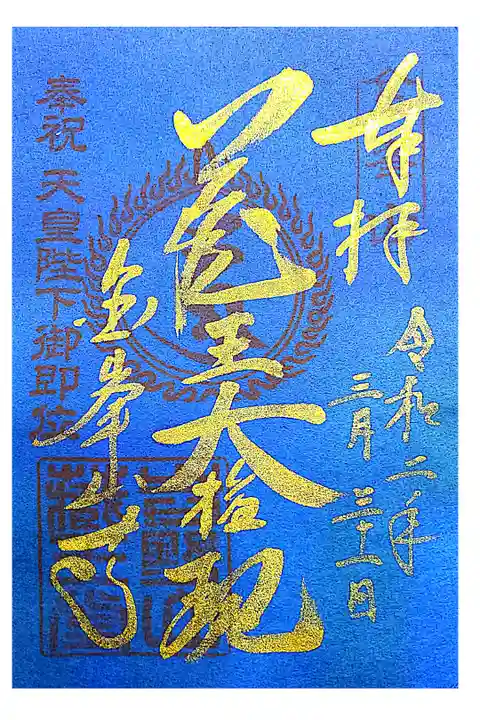 奉拝
令和二年
三月
蔵王大権現
金峯山寺
奉祝 天皇陛下御即位